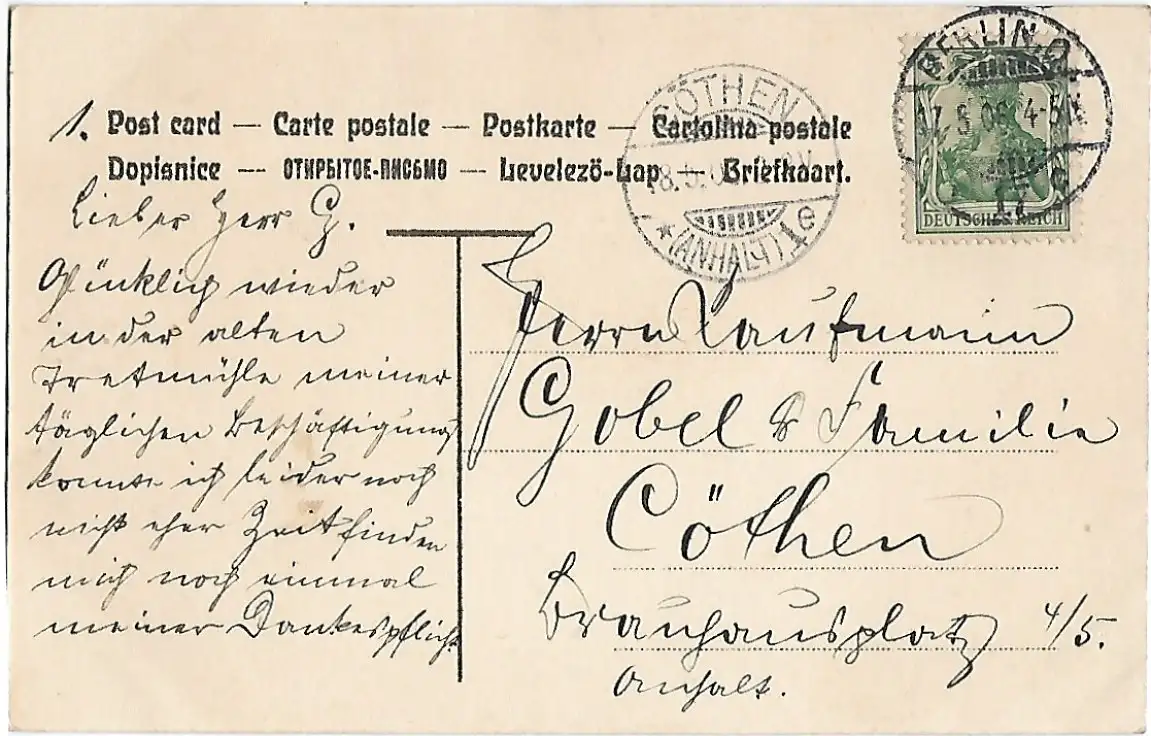 1. Post card — Carte postale — Postkarte — Cartolina postale
Dopisnice — ОТКРЫТОЕ-ПИСЬМО — Levelező-Lap — Briefkaart.
CÖTHEN
18.5.06.
(ANHALT) 1e
BERLIN.O.
17.5.06.4-5N.
17
DEUTSCHES REICH
Lieber Herr G.
Glücklich wieder
in der alten
Tretmühle meiner
täglichen Beschäftigung
konnte ich leider noch
nicht eher Zeit finden
mich noch einmal
meiner Dankespflicht
Herrn Kaufmann
Gobel & Familie
Cöthen
Brauhausplatz 4/5.
Anhalt.